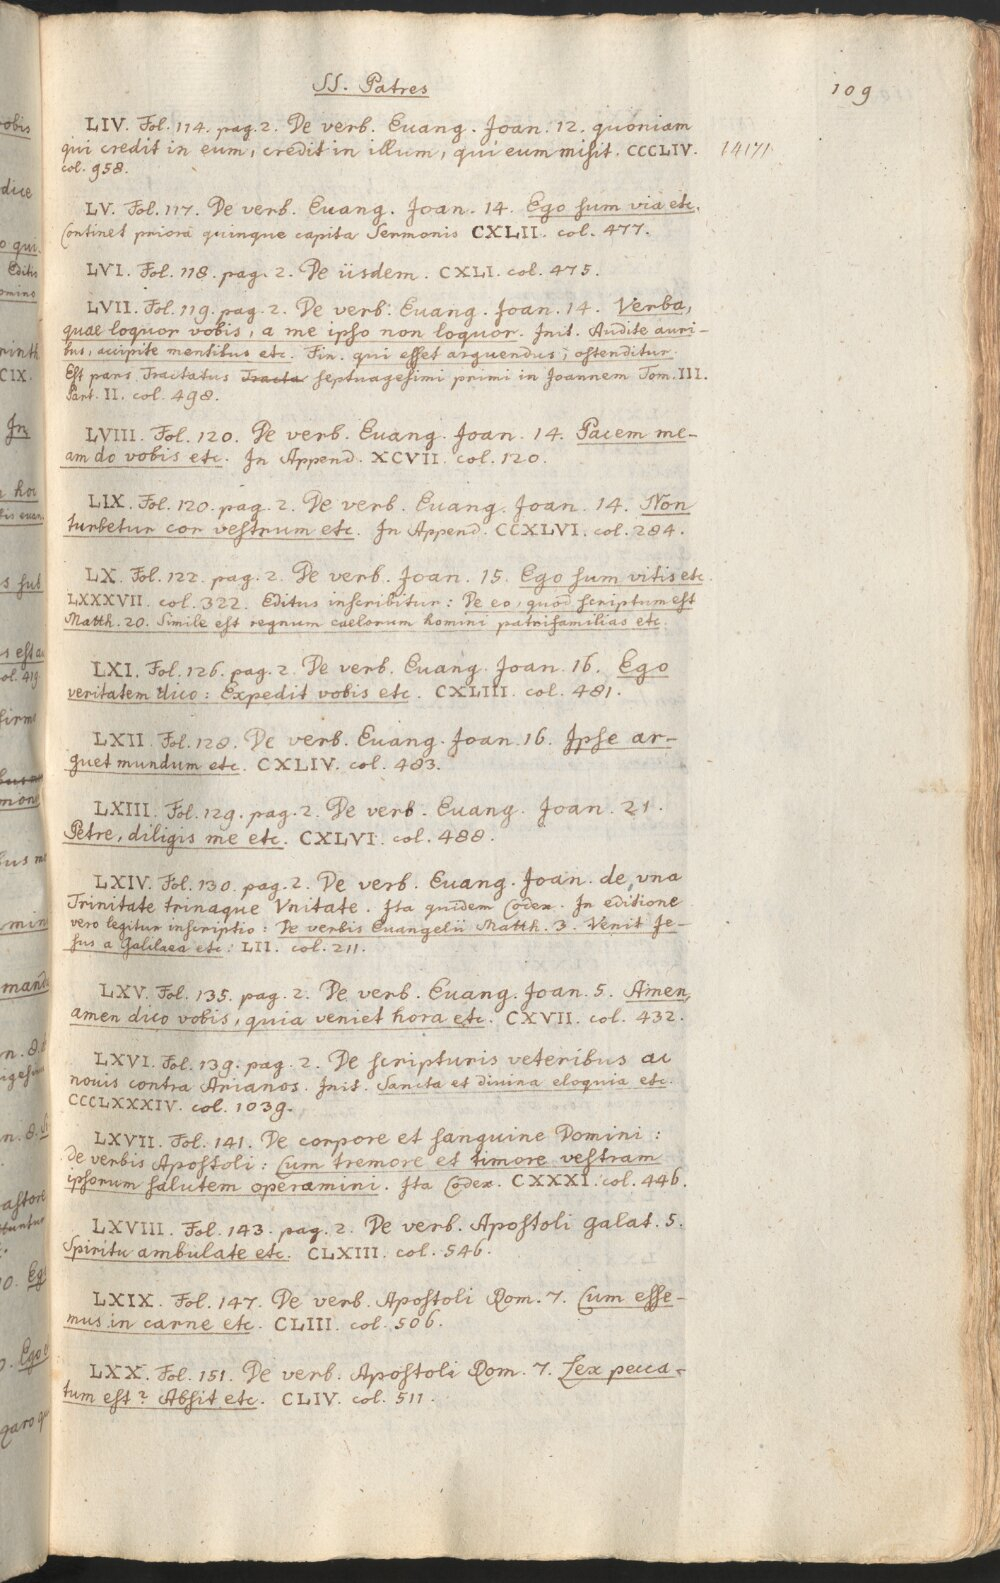 SS. Patres
109
LIV. Fol. 114. pag. 2. De verb. Euang. Joan. 12. quoniam
qui credit in eum, credit in illum, qui eum misit. CCCLIV. 14171
col. 958.
LV. Fol. 117. De verb. Euang. Joan. 14. Ego sum via etc.
Continet priora quinque capita Sermonis CXLII. col. 477.
LVI. Fol. 118. pag. 2. De iisdem. CXLI. col. 475.
LVII. Fol. 119. pag. 2. De verb. Euang. Joan. 14. Verba,
quae loquor vobis, a me ipso non loquor. Init. Audite auri-
bus, accipite mentibus etc. Fin. qui esset arguendus, ostenditur.
Est pars Tractatus Tracta septuagesimi primi in Joannem Tom. III.
Part. II. col. 498.
LVIII. Fol. 120. De verb. Euang. Joan. 14. Pacem me-
am do vobis etc. In Append. XCVII. col. 120.
LIX. Fol. 120. pag. 2. De verb. Euang. Joan. 14. Non
turbetur cor vestrum etc. In Append. CCXLVI. col. 284.
LX. Fol. 122. pag. 2. De verb. Joan. 15. Ego sum vitis etc.
LXXXVII. col. 322. Editus inscribitur: De eo, quod scriptum est
Matth. 20. Simile est regnum caelorum homini patrifamilias etc.
LXI. Fol. 126. pag. 2. De verb. Euang. Joan. 16. Ego
veritatem dico: Expedit vobis etc. CXLIII. col. 481.
LXII. Fol. 128. De verb. Euang. Joan. 16. Ipse ar-
guet mundum etc. CXLIV. col. 483.
LXIII. Fol. 129. pag. 2. De verb. Euang. Joan. 21.
Petre, diligis me etc. CXLVI. col. 488.
LXIV. Fol. 130. pag. 2. De verb. Euang. Joan. de vna
Trinitate trinaque Vnitate. Ita quidem Codex. In editione
vero legitur inscriptio: De verbis Euangelii Matth. 3. Venit Je-
sus a Galilaea etc: LII. col. 211.
LXV. Fol. 135. pag. 2. De verb. Euang. Joan. 5. Amen,
amen dico vobis, quia veniet hora etc. CXVII. col. 432.
LXVI. Fol. 139. pag. 2. De scripturis veteribus ac
nouis contra Arianos. Init. Sancta et diuina eloquia etc.
CCCLXXXIV. col. 1039.
LXVII. Fol. 141. De corpore et sanguine Domini:
de verbis Apostoli: Cum tremore et timore vestram
ipsorum salutem operamini. Ita Codex. CXXXI. col. 446.
LXVIII. Fol. 143. pag. 2. De verb. Apostoli Galat. 5.
Spiritu ambulate etc. CLXIII. col. 546.
LXIX. Fol. 147. De verb. Apostoli Rom. 7. Cum esse-
mus in carne etc. CLIII. col. 506.
LXX. Fol. 151. De verb. Apostoli Rom. 7. Lex pecca-
tum est? Absit etc. CLIV. col. 511.